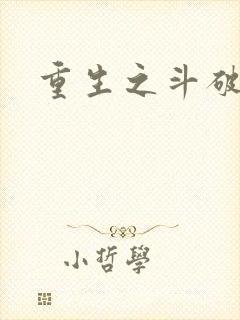 重生之斗破
小哲學